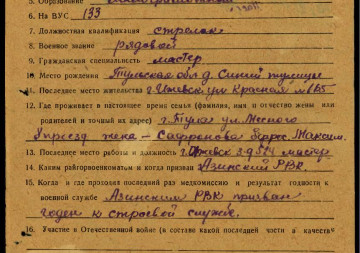 5. Образование
6. На ВУС 133
7. Должностная квалификация стрелок
8. Военное звание рядовой
9. Гражданская специальность мастер
10. Место рождения Тульская обл д. Синий
11. Последнее место жительства г. Ижевск ул Красная № 165
12. Где проживает в настоящее время семья (фамилия, имя, и отчество жены или
родителей и точный их адрес) г Тула ул. Лесного
проезд жена — Сафронова Максим.
13. Последнее место работы и должность г. Ижевск з-д 524 мастер
14. Каким райгорвоенкоматом и когда призван Азинский РВК.
15. Когда и где проходил последний раз медкомиссию и результат годности к
военной службе Азинским РВК призван
годен к строевой службе.
16. Участие в Отечественной войне (в составе какой последней части в качестве